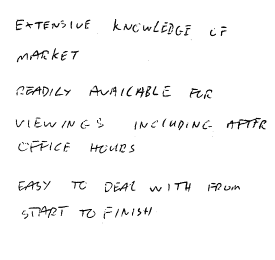 EXTENSIVE KNOWLEDGE OF
MARKET
READILY AVAILABLE FOR
VIEWINGS INCLUDING AFTER
OFFICE HOURS
EASY TO DEAL WITH FROM
START TO FINISH